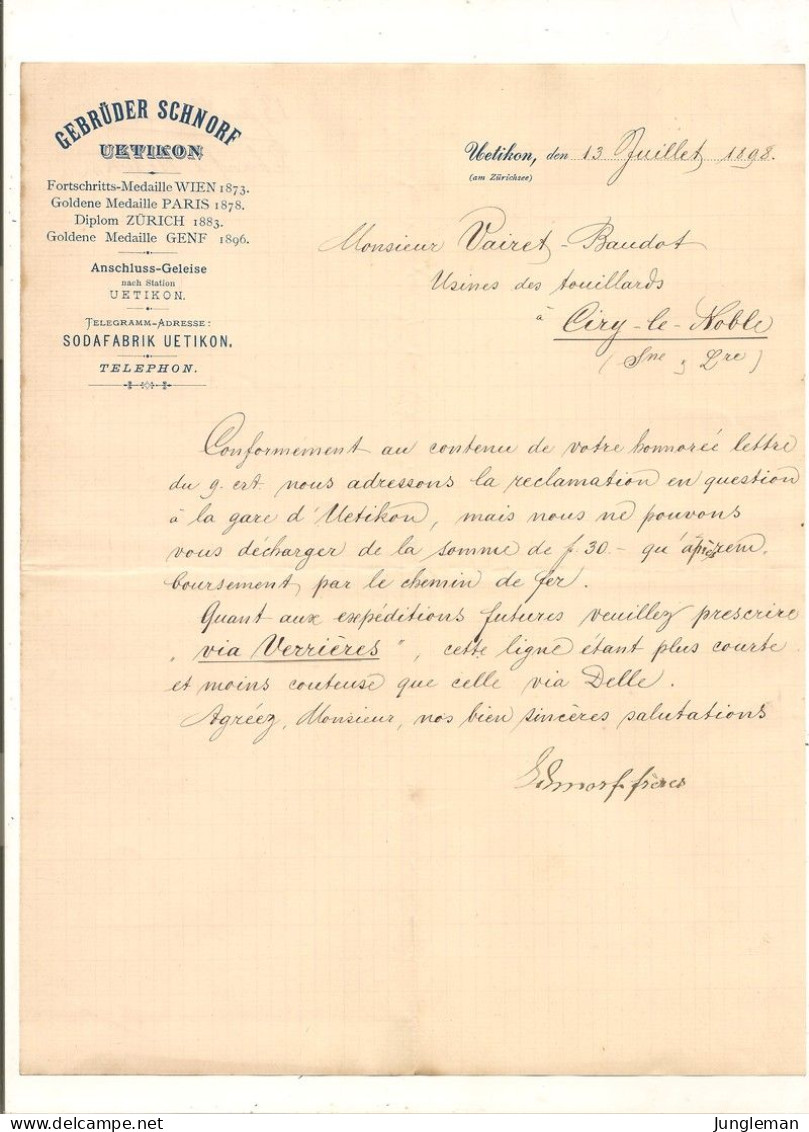 GEBRÜDER SCHNORF
UETIKON
Fortschritts-Medaille WIEN 1873.
Goldene Medaille PARIS 1878.
Diplom ZÜRICH 1883.
Goldene Medaille GENF 1896.
Anschluss-Geleise
nach Station
UETIKON.
TELEGRAMM-ADRESSE:
SODAFABRIK UETIKON.
TELEPHON.
Uetikon, den 13 Juillet 1898.
(am Zürichsee)
Monsieur Vairet-Baudot
Usines des touillards
à Ciry-le-Noble
(Sne & Lre)
Conformément au contenu de votre honnorée lettre
du 9. crt. nous adressons la reclamation en question
à la gare d'Uetikon, mais nous ne pouvons
vous décharger de la somme de f. 30.- qu'après rem-
boursement par le chemin de fer.
Quant aux expéditions futures veuillez prescrire
„via Verrières", cette ligne étant plus courte
et moins couteuse que celle via Delle.
Agréez, Monsieur, nos bien sincères salutations
Schnorf frères
delcampe.net
Jungleman